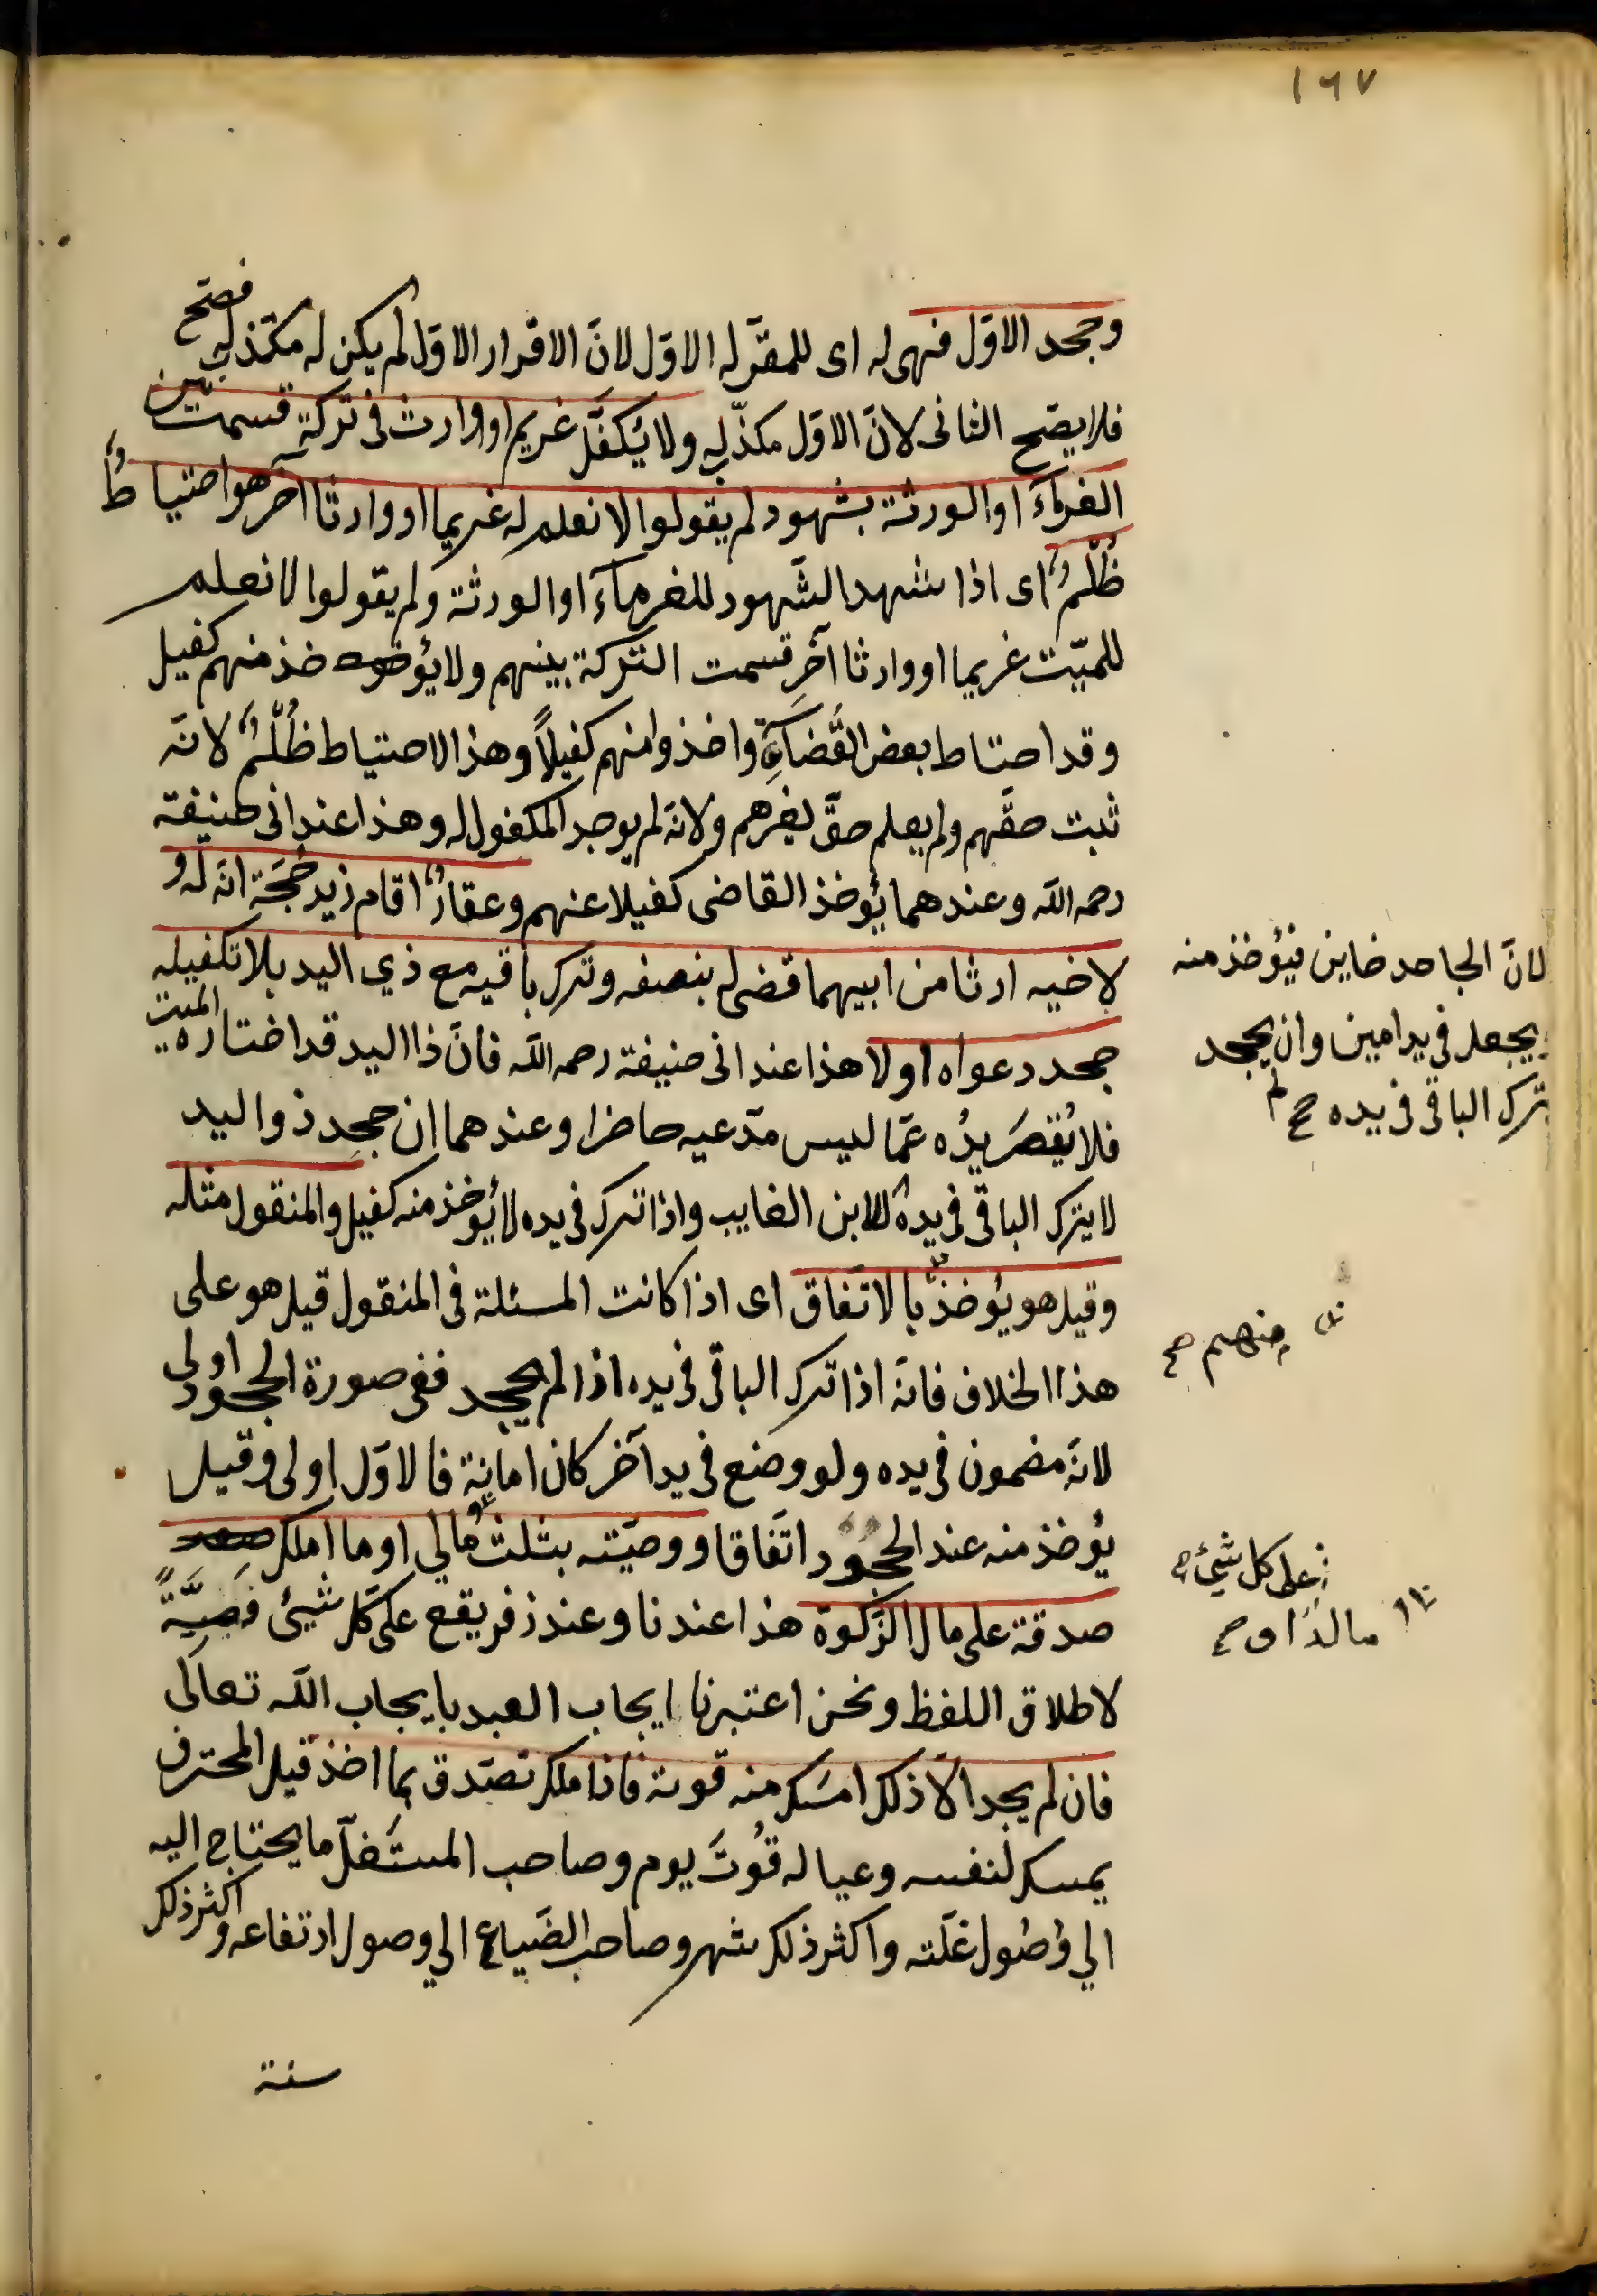 ١٦٧
وجحد الاوّل فهى له اى للمقرّ له الاوّل لانّ الاقرار الاوّل لم يكن له مكذّب فصحّ
فلا يصحّ الثانى لانّ الاوّل مكذّب له ولا يُكفَّل غريم او وارث فى تركة قسمت بين
الغرماء او الورثة بشهود لم يقولوا لا نعلم له غريما او وارثا اخر هو احتياطٌ
ظُلْمٌ اى اذا شهد الشّهود للغرماء او الورثة ولم يقولوا لا نعلم
للميّت غريما او وارثا آخر قسمت التركة بينهم ولا يؤخذ منهم كفيل
وقد احتاط بعض القُضاة واخذوا منهم كفيلاً وهذا الاحتياط ظُلْمٌ لانّه
ثبت حقّهم ولم يعلم حقّ لغيرهم ولانّه لم يوجد المكفول له وهذا عند ابى حنيفة
رحمه الله وعندهما يُؤخذ القاضى كفيلا عنهم وعقارٌ اقام زيد حُجّة انّه له و
لاخيه ارثا من ابيهما قضى له بنصفه وترك باقيه مع ذي اليد بلا تكفيله
جحد دعواه او لا هذا عند ابى حنيفة رحمه الله فانّ ذا اليد قد اختاره الميت
فلا تُقصَر يدُه عمّا ليس مدّعيه حاضرا وعندهما ان جحد ذو اليد
لا يترك الباقى فى يده للابن الغايب واذا ترك فى يده لا يُؤخذ منه كفيل والمنقول مثله
وقيل هو يُؤخذ بالاتّفاق اى اذا كانت المسئلة فى المنقول قيل هو على
هذا الخلاف فانّه اذا ترك الباقى فى يده اذا لم يجحد ففى صورة الجحود اولى
لانّه مضمون فى يده ولو وضع فى يد آخر كان امانة فالاوّل اولى وقيل
يُؤخذ منه عند الجحود اتّفاقا ووصيّته بثلث مالي او ما املك
صدقة على مال الزّكوة هذا عندنا وعند زفر يقع على كلّ شيئ قضيّةً
لاطلاق اللفظ ونحن اعتبرنا ايجاب العبد بايجاب الله تعالى
فان لم يجد الّا ذلك امسك منه قوته فاذا ملك تصدّق بما اخذ قيل المحترف
يمسك لنفسه وعياله قُوتَ يوم وصاحب المستغلّ ما يحتاج اليه
الي وُصُول غلّته واكثر ذلك شهر وصاحب الضّياع الي وصول ارتفاعه واكثر ذلك
سنة
لانّ الجاحد خاين فيُؤخذ منه
ويجعل فى يد امين وان لم يجحد
يترك الباقى فى يده صح
منهم صح
على كل شيئ صح
مال او صح